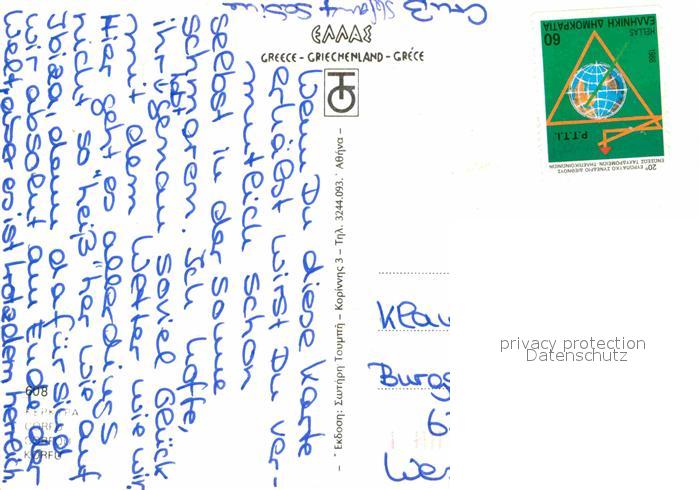 ΕΛΛΑΣ
GREECE – GRIECHENLAND – GRÈCE
Wenn Du diese Karte
erhälst wirst Du ver-
mutlich schon
selbst in der Sonne
schmoren. Ich hoffe,
ihr habt genau soviel Glück
mit dem Wetter wie wir.
Hier geht es allerdings
nicht so "heiß" her wie auf
Ibiza, dann dafür sind
wir absolut am Ende der
Welt, aber es ist trotzdem herrlich.
Gruß Stefan & Sabine
608
ΚΕΡΚΥΡΑ
CORFU
CORFOU
KORFU
Έκδοση: Σωτήρη Τουμπή – Κορίννης 3 – Τηλ. 3244.093. Αθήνα –
60
ΕΛΛΗΝΙΚΗ ΔΗΜΟΚΡΑΤΙΑ
HELLAS
1988
P.T.T.I.
20ο ΕΥΡΩΠΑΪΚΟ ΣΥΝΕΔΡΙΟ ΔΙΕΘΝΟΥΣ
ΕΝΩΣΕΩΣ ΤΑΧΥΔΡΟΜΕΙΩΝ-ΤΗΛΕΠΙΚΟΙΝΩΝΙΩΝ
Klau
Burgs
6
We
privacy protection
Datenschutz